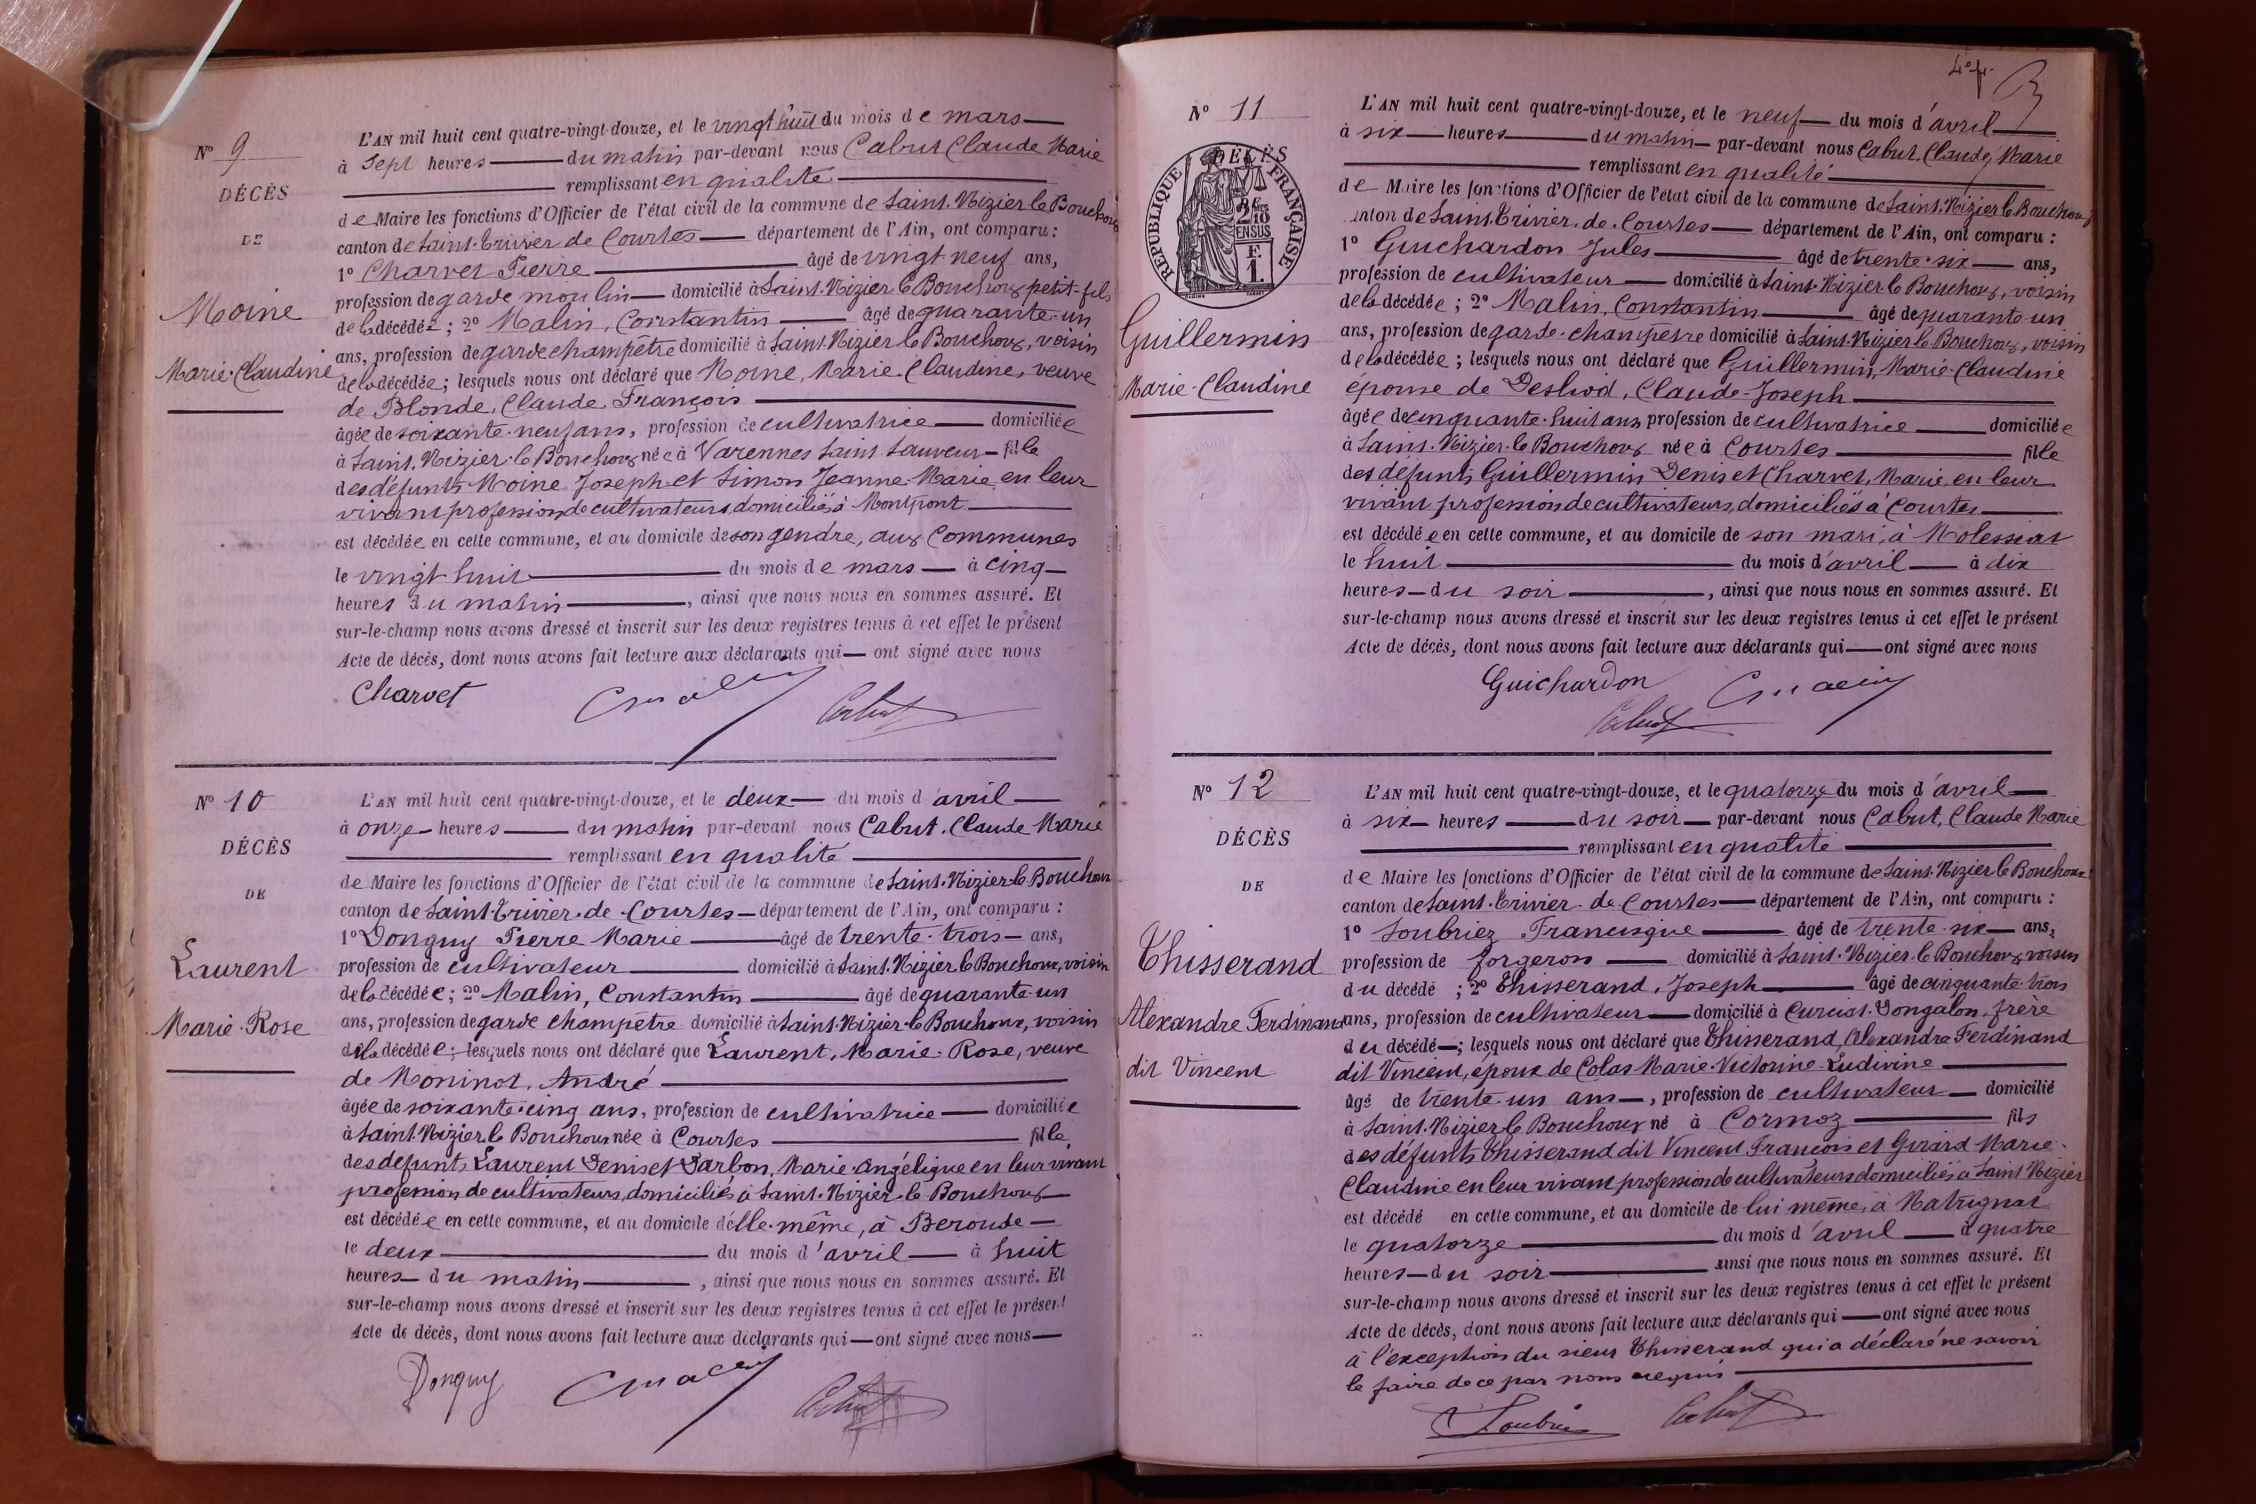 Nº 9
DÉCÈS
DE
Moine
Marie-Claudine
L'AN mil huit cent quatre-vingt-douze, et le vingt huit du mois de mars
à sept heures du matin par-devant nous Cabut Claude Marie
remplissant en qualité
de Maire les fonctions d'Officier de l'état civil de la commune de Saint-Nizier le Bouchoux
canton de Saint-Trivier de Courtes département de l'Ain, ont comparu :
1º Charvet Pierre âgé de vingt neuf ans,
profession de garde moulin domicilié à Saint-Nizier le Bouchoux petit-fils
de la décédée ; 2º Malin, Constantin âgé de quarante-un
ans, profession de garde champêtre domicilié à Saint-Nizier le Bouchoux, voisin
de la décédée ; lesquels nous ont déclaré que Moine, Marie-Claudine, veuve
de Blonde, Claude François
âgée de soixante-neuf ans, profession de cultivatrice domiciliée
à Saint-Nizier-le Bouchoux née à Varennes Saint Sauveur fille
des défunts Moine Joseph et Simon Jeanne-Marie en leur
vivant profession de cultivateurs, domiciliés à Montpont
est décédée en cette commune, et au domicile de son gendre, aux Communes
le vingt huit du mois de mars à cinq
heures du matin, ainsi que nous nous en sommes assuré. Et
sur-le-champ nous avons dressé et inscrit sur les deux registres tenus à cet effet le présent
Acte de décès, dont nous avons fait lecture aux déclarants qui ont signé avec nous
Charvet Cmalin Cabut
Nº 10
DÉCÈS
DE
Laurent
Marie-Rose
L'AN mil huit cent quatre-vingt-douze, et le deux du mois d'avril
à onze heures du matin par-devant nous Cabut, Claude Marie
remplissant en qualité
de Maire les fonctions d'Officier de l'état civil de la commune de Saint-Nizier-le Bouchoux
canton de Saint-Trivier-de-Courtes département de l'Ain, ont comparu :
1º Donguy Pierre Marie âgé de trente-trois ans,
profession de cultivateur domicilié à Saint-Nizier le Bouchoux, voisin
de la décédée ; 2º Malin, Constantin âgé de quarante-un
ans, profession de garde champêtre domicilié à Saint-Nizier-le Bouchoux, voisin
de la décédée ; lesquels nous ont déclaré que Laurent, Marie-Rose, veuve
de Moninot, André
âgée de soixante-cinq ans, profession de cultivatrice domiciliée
à Saint-Nizier-le Bouchoux née à Courtes fille
des défunts Laurent Denis et Darbon, Marie-Angélique en leur vivant
profession de cultivateurs, domiciliés à Saint-Nizier-le Bouchoux
est décédée en cette commune, et au domicile d'elle-même, à Beroude
le deux du mois d'avril à huit
heures du matin, ainsi que nous nous en sommes assuré. Et
sur-le-champ nous avons dressé et inscrit sur les deux registres tenus à cet effet le présent
Acte de décès, dont nous avons fait lecture aux déclarants qui ont signé avec nous
Donguy Cmalin Cabut
Nº 11
DÉCÈS
RÉPUBLIQUE FRANÇAISE
Guillermin
Marie-Claudine
L'AN mil huit cent quatre-vingt-douze, et le neuf du mois d'avril
à six heures du matin par-devant nous Cabut, Claude, Marie
remplissant en qualité
de Maire les fonctions d'Officier de l'état civil de la commune de Saint-Nizier le Bouchoux
canton de Saint-Trivier-de-Courtes département de l'Ain, ont comparu :
1º Guichardon Jules âgé de trente-six ans,
profession de cultivateur domicilié à Saint-Nizier-le Bouchoux, voisin
de la décédée ; 2º Malin, Constantin âgé de quarante-un
ans, profession de garde-champêtre domicilié à Saint-Nizier le Bouchoux, voisin
de la décédée ; lesquels nous ont déclaré que Guillermin, Marie-Claudine
épouse de Desliod, Claude-Joseph
âgée de cinquante-huit ans, profession de cultivatrice domiciliée
à Saint-Nizier-le Bouchoux née à Courtes fille
des défunts Guillermin Denis et Charvet, Marie en leur
vivant profession de cultivateurs, domiciliés à Courtes
est décédée en cette commune, et au domicile de son mari, à Molessiat
le huit du mois d'avril à dix
heures du soir, ainsi que nous nous en sommes assuré. Et
sur-le-champ nous avons dressé et inscrit sur les deux registres tenus à cet effet le présent
Acte de décès, dont nous avons fait lecture aux déclarants qui ont signé avec nous
Guichardon Cmalin
Cabut
Nº 12
DÉCÈS
DE
Thisserand
Alexandre Ferdinand
dit Vincent
L'AN mil huit cent quatre-vingt-douze, et le quatorze du mois d'avril
à six heures du soir par-devant nous Cabut, Claude Marie
remplissant en qualité
de Maire les fonctions d'Officier de l'état civil de la commune de Saint-Nizier le Bouchoux
canton de Saint-Trivier-de Courtes département de l'Ain, ont comparu :
1º Soubriez Francisque âgé de trente-six ans,
profession de forgeron domicilié à Saint-Nizier-le Bouchoux, voisin
du décédé ; 2º Thisserand, Joseph âgé de cinquante-trois
ans, profession de cultivateur domicilié à Curciat-Dongalon, frère
du décédé ; lesquels nous ont déclaré que Thisserand, Alexandre Ferdinand
dit Vincent, époux de Colas Marie-Victorine-Ludivine
âgé de trente-un ans, profession de cultivateur domicilié
à Saint-Nizier le Bouchoux né à Cormoz fils
des défunts Thisserand dit Vincent François et Girard Marie-
Claudine en leur vivant profession de cultivateurs domiciliés à Saint Nizier
est décédé en cette commune, et au domicile de lui même, à Matrignat
le quatorze du mois d'avril à quatre
heures du soir ainsi que nous nous en sommes assuré. Et
sur-le-champ nous avons dressé et inscrit sur les deux registres tenus à cet effet le présent
Acte de décès, dont nous avons fait lecture aux déclarants qui ont signé avec nous
à l'exception du sieur Thisserand qui a déclaré ne savoir
le faire de ce par nous requis
Soubriez Cabut